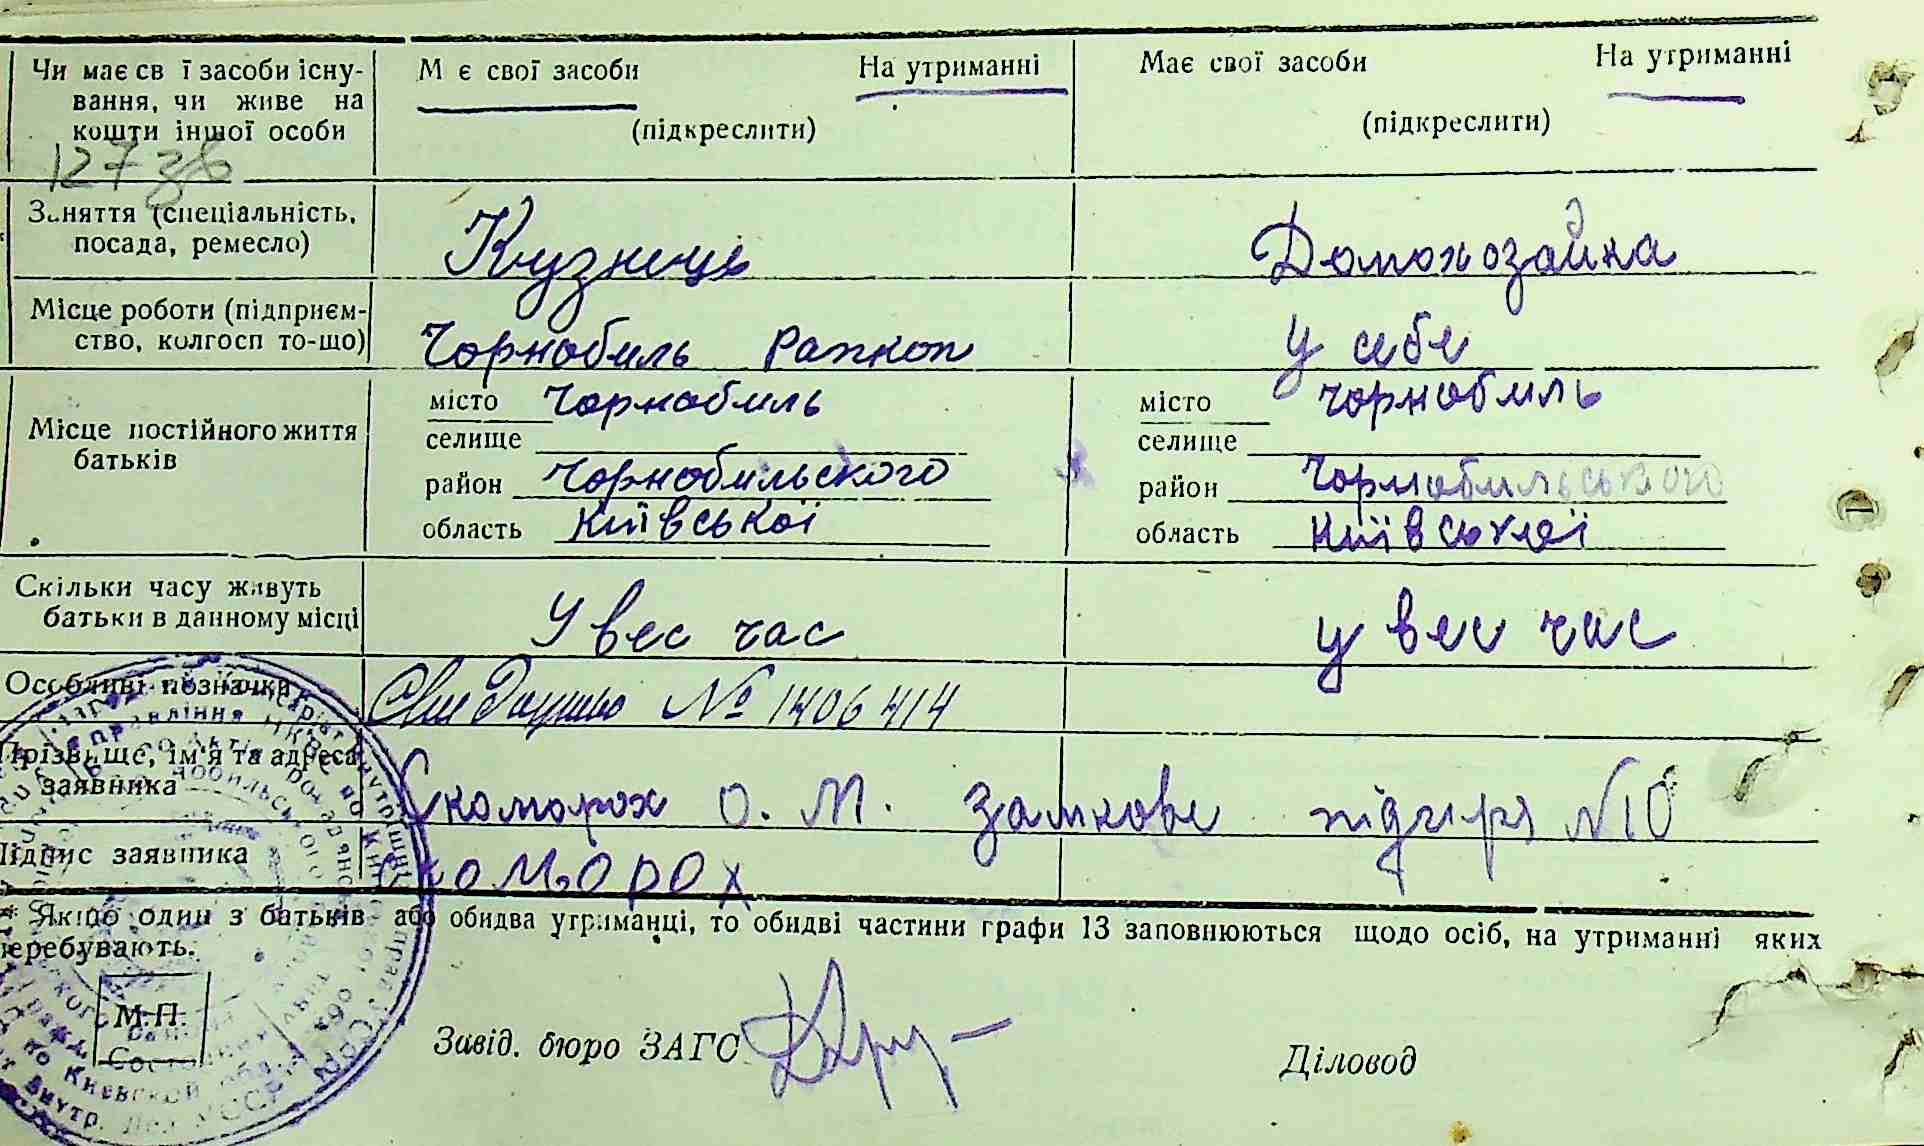 Чи має св ї засоби існу- М є свої засоби На утриманні Має свої засоби На утриманні
вання, чи живе на
кошти іншої особи (підкреслити) (підкреслити)
127
Заняття (спеціальність,
посада, ремесло) Кузнець Домохозайка
Місце роботи (підприєм-
ство, колгосп то-що) Чорнобиль У себе
Місце постійного життя
батьків
місто Чорнобиль місто Чорнобиль
селище селище
район Чорнобильского район Чорнобильського
область Київської область Київської
Скільки часу живуть
батьки в данному місці У вес час у вес час
Особливі позначки № 1406414
Прізвище, ім'я та адреса
заявника Скоморох О. М. Замкове підгіря №10
Підпис заявника Скоморох
* Якщо один з батьків або обидва утриманці, то обидві частини графи 13 заповнюються щодо осіб, на утриманні яких
перебувають.
М.П.
Завід. бюро ЗАГС Діловод